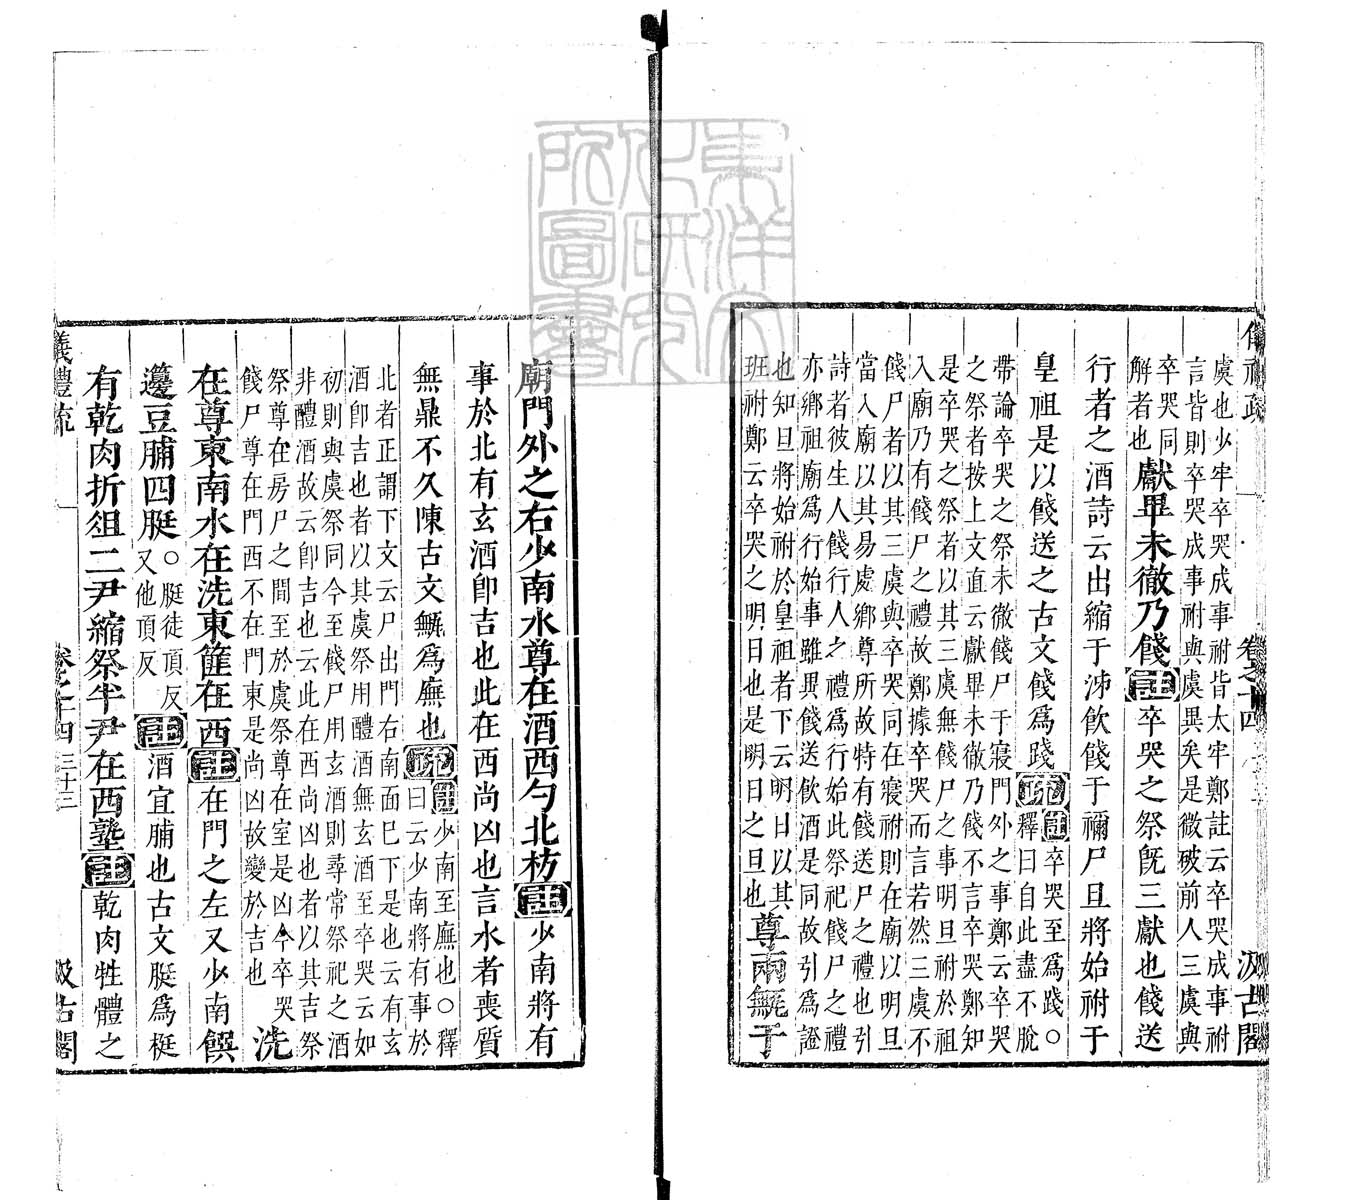 虞也少牢卒哭成事祔皆太牢鄭註云卒哭成事祔
言皆則卒哭成事祔與虞異矣是微破前人三虞與
卒哭同
解者也
獻畢未徹乃餞註卒哭之祭旣三獻也餞送
行者之酒詩云出縮于泲飮餞于禰尸且將始祔于
皇祖是以餞送之古文餞爲踐
疏註卒哭至爲踐○
釋曰自此盡不脫
帶論卒哭之祭未徹餞尸于寢門外之事鄭云卒哭
之祭者按上文直云獻畢未徹乃餞不言卒哭鄭知
是卒哭之祭者以其三虞無餞尸之事明旦祔於祖
入廟乃有餞尸之禮故鄭據卒哭而言若然三虞不
餞尸者以其三虞與卒哭同在寢祔則在廟以明旦
當入廟以其易處鄉尊所故特有餞送尸之禮也引
詩者彼生人餞行人之禮爲行始此祭祀餞尸之禮
亦鄉祖廟爲行始事雖異餞送飮酒是同故引爲證
也知旦將始祔於皇祖者下云明日以其
班祔鄭云卒哭之明日也是明日之旦也
尊兩甒于
廟門外之右少南水尊在酒西勺北枋註少南將有
事於北有玄酒卽吉也此在西尚凶也言水者喪質
無鼎不久陳古文甒爲廡也
疏註少南至廡也○釋
曰云少南將有事於
北者正謂下文云尸出門右南面巳下是也云有玄
酒卽吉也者以其虞祭用醴酒無玄酒至卒哭云如
初則與虞祭同今至餞尸用玄酒則尋常祭祀之酒
非醴酒故云卽吉也云此在西尚凶也者以其吉祭
祭尊在房戶之間至於虞祭尊在室是凶今卒哭
餞尸尊在門西不在門東是尚凶故變於吉也
洗
在尊東南水在洗東篚在西註在門之左又少南饌
籩豆脯四脡
○脡徒頂反
又他頂反
註酒宜脯也古文脡爲梃
有乾肉折俎二尹縮祭半尹在西塾註乾肉牲體之
儀禮疏 卷之十四 三十三 汲古閣
儀禮疏 卷之十四 汲古閣